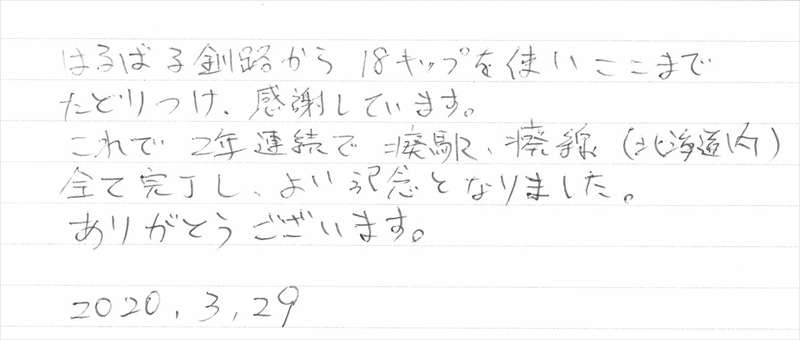 はるばる釧路から 18キップを使いここまで
たどりつけ、感謝しています。
これで 2年連続で 廃駅、廃線 (北海道内)
全て完了し、よい記念となりました。
ありがとうございます。
2020.3,29